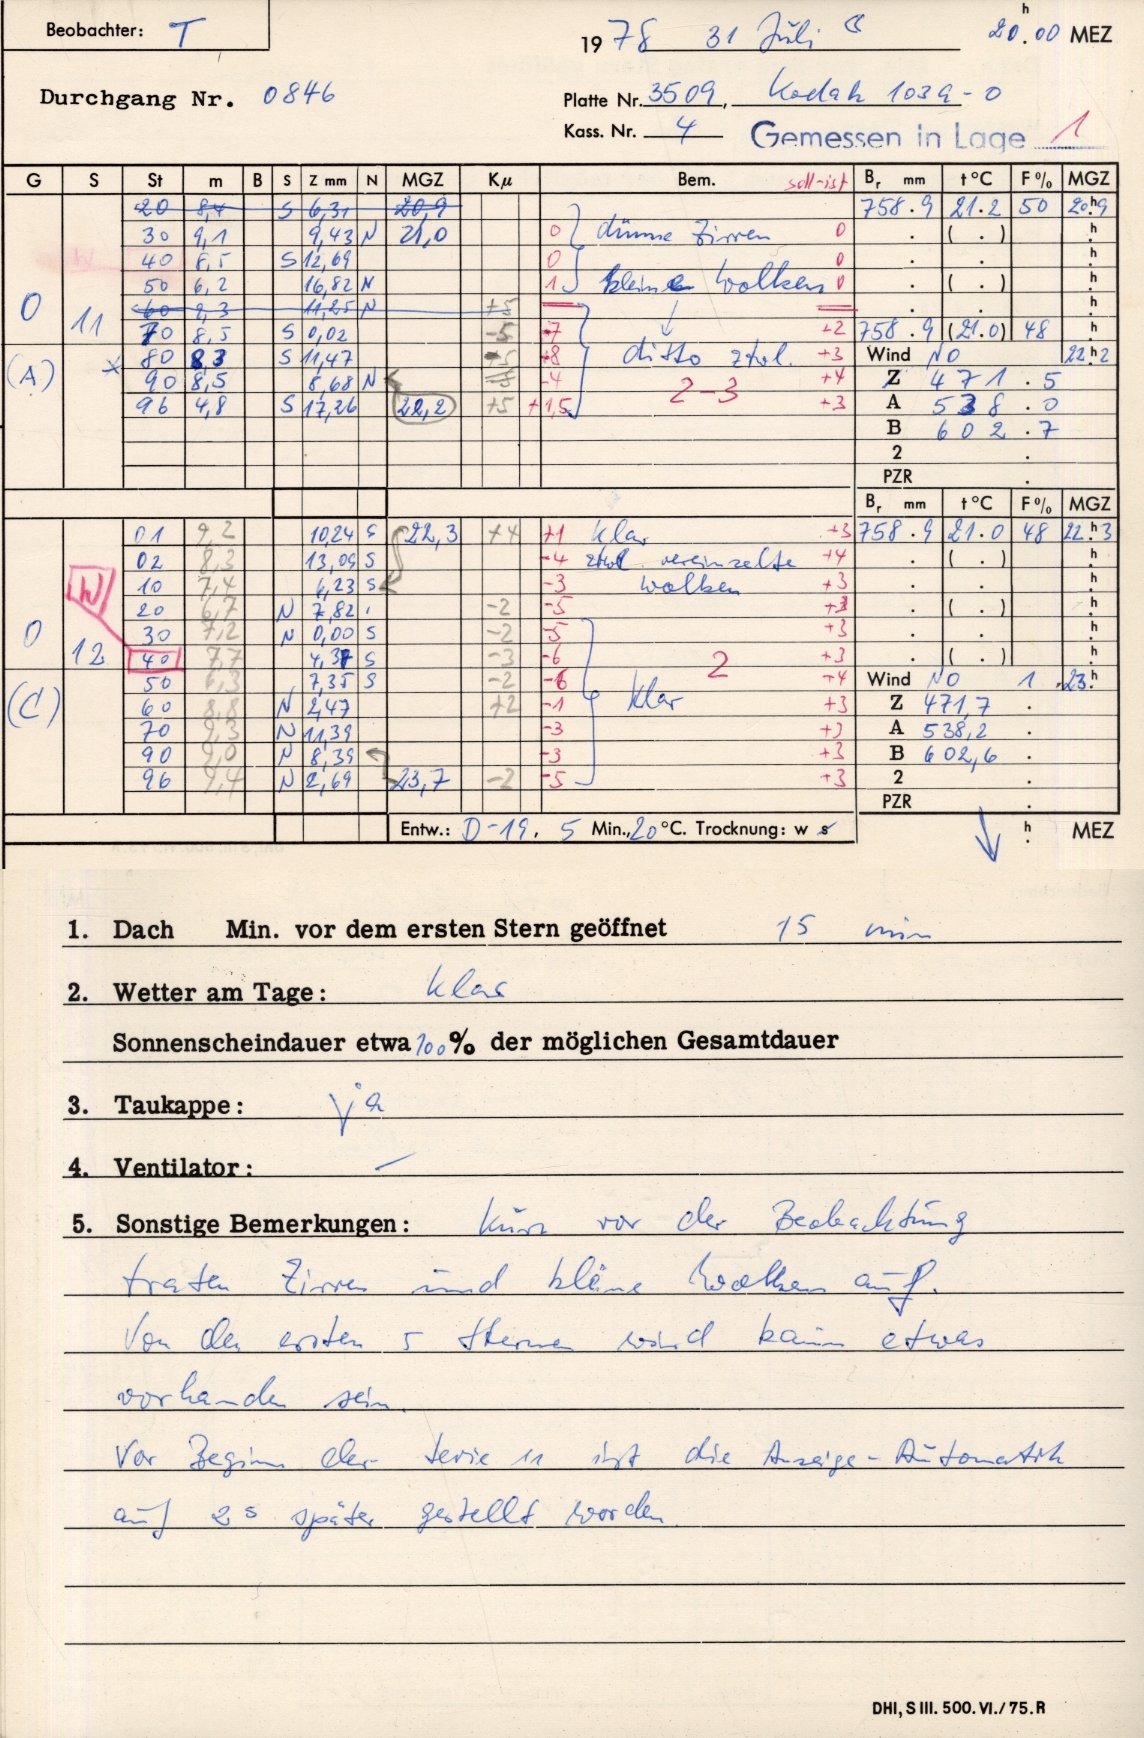 Beobachter: T
1978 31 Juli 20.00 h MEZ
Durchgang Nr. 0846
Platte Nr. 3509, Kodak 103a-O
Kass. Nr. 4 Gemessen in Lage 1
G S St m B S Z mm N MGZ Kµ Bem. soll-ist Br mm t °C F % MGZ
20 8,4 S 6,31 20,9 758.9 21.2 50 20.h9
30 9,1 9,43 N 21,0 0 dünne Zirren 0 . ( . ) h
40 8,5 S 12,69 0 0 . . h
50 6,2 16,82 N 1 kleine Wolken 0 . ( . ) h
60 9,3 11,25 N +5 . . h
O 11 70 8,5 S 0,02 -5 -7 +2 758.9 (21.0) 48 h
(A) 80 8,3 S 11,47 +8 ditto ztwl. +3 Wind NO 22h2
90 8,5 8,68 N -4 2-3 +4 Z 471.5
96 4,8 S 17,26 22,2 +5 +1,5 +3 A 538.0
B 602.7
2 .
PZR .
Br mm t °C F % MGZ
01 9,2 10,24 S 22,3 +4 +1 klar +3 758.9 21.0 48 22.h3
02 8,3 13,09 S -4 ztwl. vereinzelte +4 . ( . ) h
W 10 7,4 6,23 S -3 wolken +3 . . h
20 6,7 N 7,82 -2 -5 +3 . ( . ) h
O 30 7,2 N 0,00 S -2 -5 +3 . . h
12 40 7,7 4,37 S -3 -6 2 +3 . ( . ) h
50 6,3 7,35 S -2 -6 +4 Wind NO 1 23.h
(C) 60 8,8 N 2,47 +2 -1 klar +3 Z 471,7 .
70 9,3 N 11,39 -3 +3 A 538,2 .
90 9,0 N 8,39 -3 +3 B 602,6 .
96 9,4 N 2,69 23,7 -2 -5 +3 2 .
PZR .
Entw.: D-19, 5 Min., 20 °C. Trocknung: w s h MEZ
1. Dach Min. vor dem ersten Stern geöffnet 15 min
2. Wetter am Tage: klar
Sonnenscheindauer etwa 100% der möglichen Gesamtdauer
3. Taukappe: ja
4. Ventilator: –
5. Sonstige Bemerkungen: Kurz vor der Beobachtung
traten Zirren und kleine Wolken auf.
Von den ersten 5 Sternen wird kaum etwas
vorhanden sein.
Vor Beginn der Serie 11 ist die Anzeige-Automatik
auf 2s später gestellt worden
DHI, S III. 500. VI./75. R